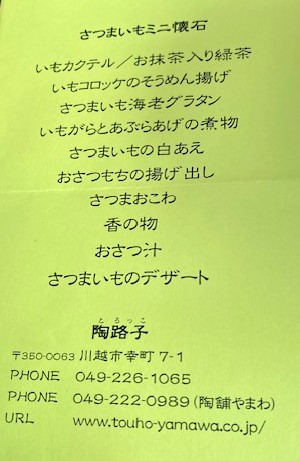 さつまいもミニ懐石
いもカクテル／お抹茶入り緑茶
いもコロッケのそうめん揚げ
さつまいも海老グラタン
いもがらとあぶらあげの煮物
さつまいもの白あえ
おさつもちの揚げ出し
さつまおこわ
香の物
おさつ汁
さつまいものデザート
とろっこ
陶路子
〒350-0063 川越市幸町 7-1
PHONE 049-226-1065
PHONE 049-222-0989 (陶舗やまわ)
URL www.touho-yamawa.co.jp/